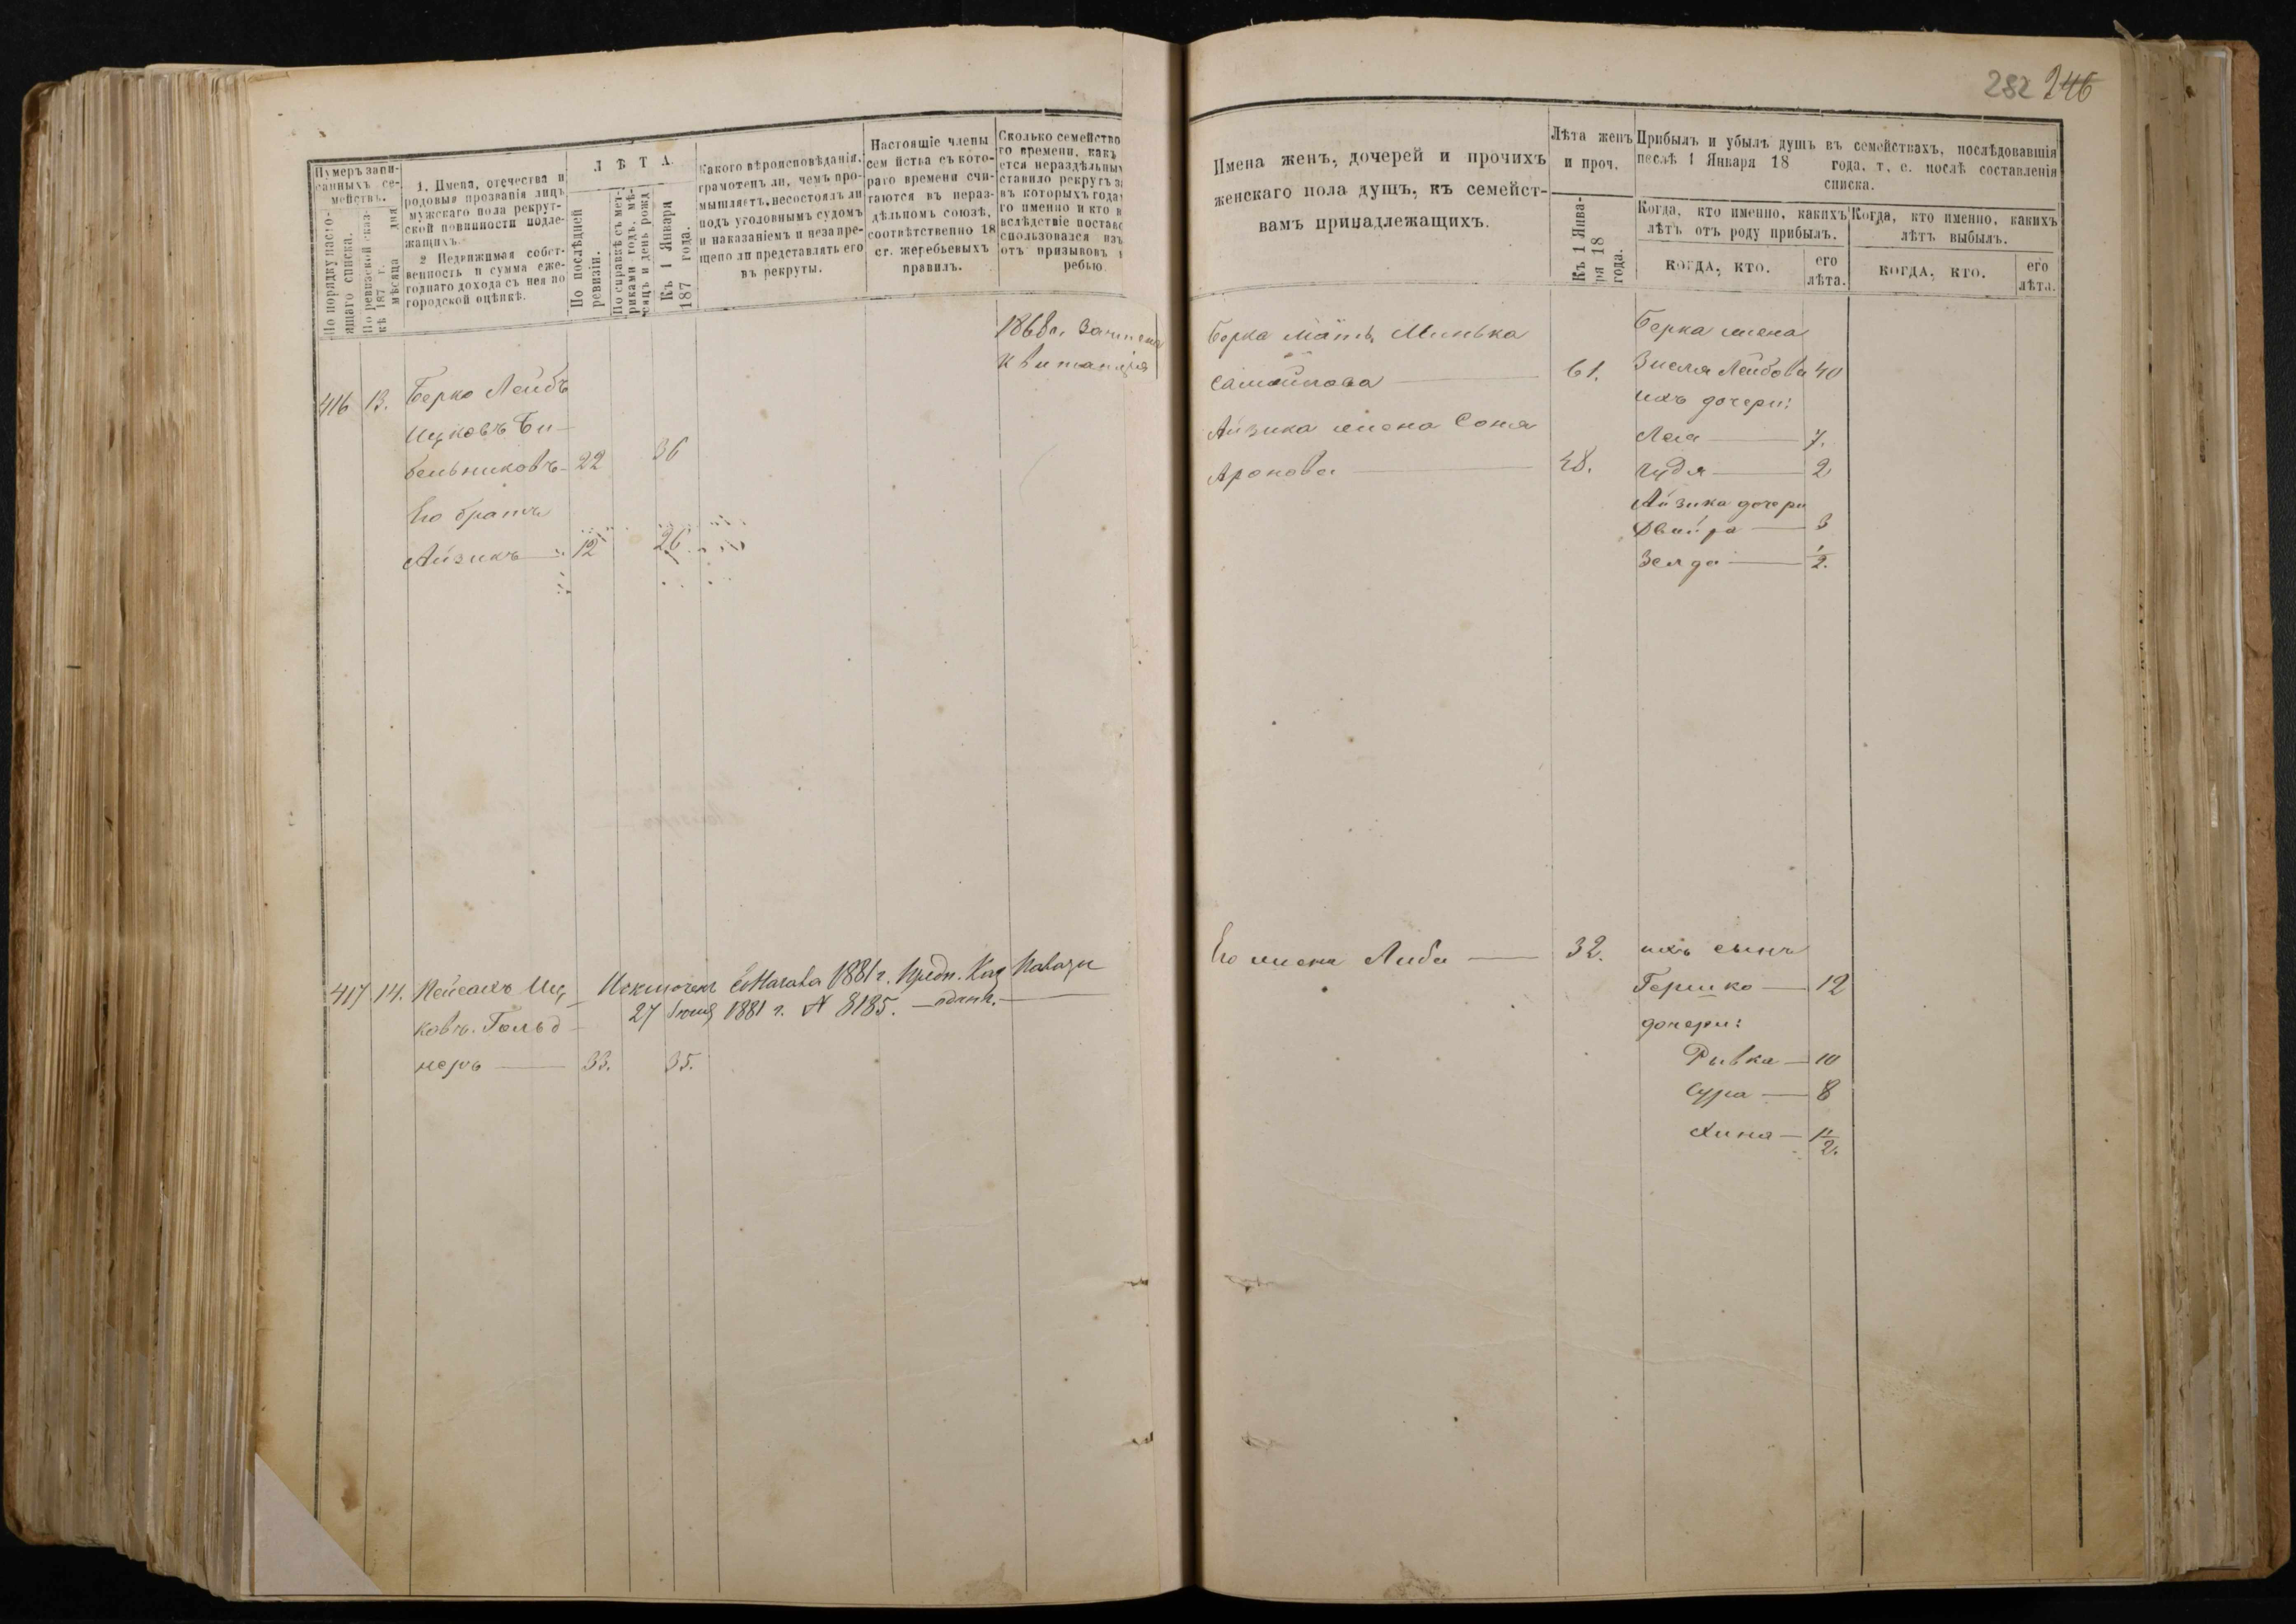 282 246
Нумеръ запи-
санныхъ се-
мействъ.
По порядку насто-
ящаго списка.
По ревизской сказ-
кѣ 187 г.
мѣсяца дня
1. Имена, отечества и
родовыя прозванія лицъ
мужскаго пола рекрут-
ской повинности подле-
жащихъ.
2 Недвижимая собст-
венность и сумма еже-
годнаго дохода съ нея по
городской оцѣнкѣ.
ЛѢТА
По послѣдней
ревизіи.
По справкѣ съ мет-
риками годъ, мѣ-
сяцъ и день рожд
Къ 1 Января
187 года.
Какого вѣроисповѣданія,
грамотенъ ли, чемъ про-
мышляетъ, несостоялъ ли
подъ уголовнымъ судомъ
и наказаніемъ и незапре-
щено ли представлять его
въ рекруты.
Настоящіе члены
семейства съ кото-
раго времени счи-
таются въ нераз-
дѣльномъ союзѣ,
соотвѣтственно 18
ст. жеребьевыхъ
правилъ.
Сколько семейство
го времени, какъ
ется нераздѣльны
ставило рекрутъ з
въ которыхъ года
го именно и кто в
вслѣдствіе постав
спользовался изъ
отъ призывовъ
ребью
1868 г. Зачтена
квитанція
416 13. Берко Лейбъ
Ицковъ Би-
бельниковъ 22 36
Его братъ
Айзикъ 12 26
417 14. Пейсахъ Иц
ковъ Гольд
неръ 33. 35.
1881 г. Предп. Каз
27 1881 г. № 8185.
Имена женъ, дочерей и прочихъ
женскаго пола душъ, къ семейст-
вамъ принадлежащихъ.
Лѣта женъ
и проч.
Къ 1 Янва-
ря 18
года.
Прибылъ и убылъ душъ въ семействахъ, послѣдовавшія
послѣ 1 Января 18 года, т. е. послѣ составленія
списка.
Когда, кто именно, какихъ
лѣтъ отъ роду прибылъ.
Когда, кто именно, какихъ
лѣтъ выбылъ.
КОГДА, КТО.
его
лѣта.
КОГДА, КТО.
его
лѣта.
Берка мать Минька
Самойлова 61.
Айзика жена Соня
Аронова 48.
Берка жена
Зисля Лейбова 40
ихъ дочери:
Леа 7.
Гудя 2
Айзика дочери
Двейра 3
Зелда 1/2.
Его жена Либа 32.
ихъ сынъ
Гершко 12
дочери:
Рывка 10
Сура 8
Хина 1 1/2.